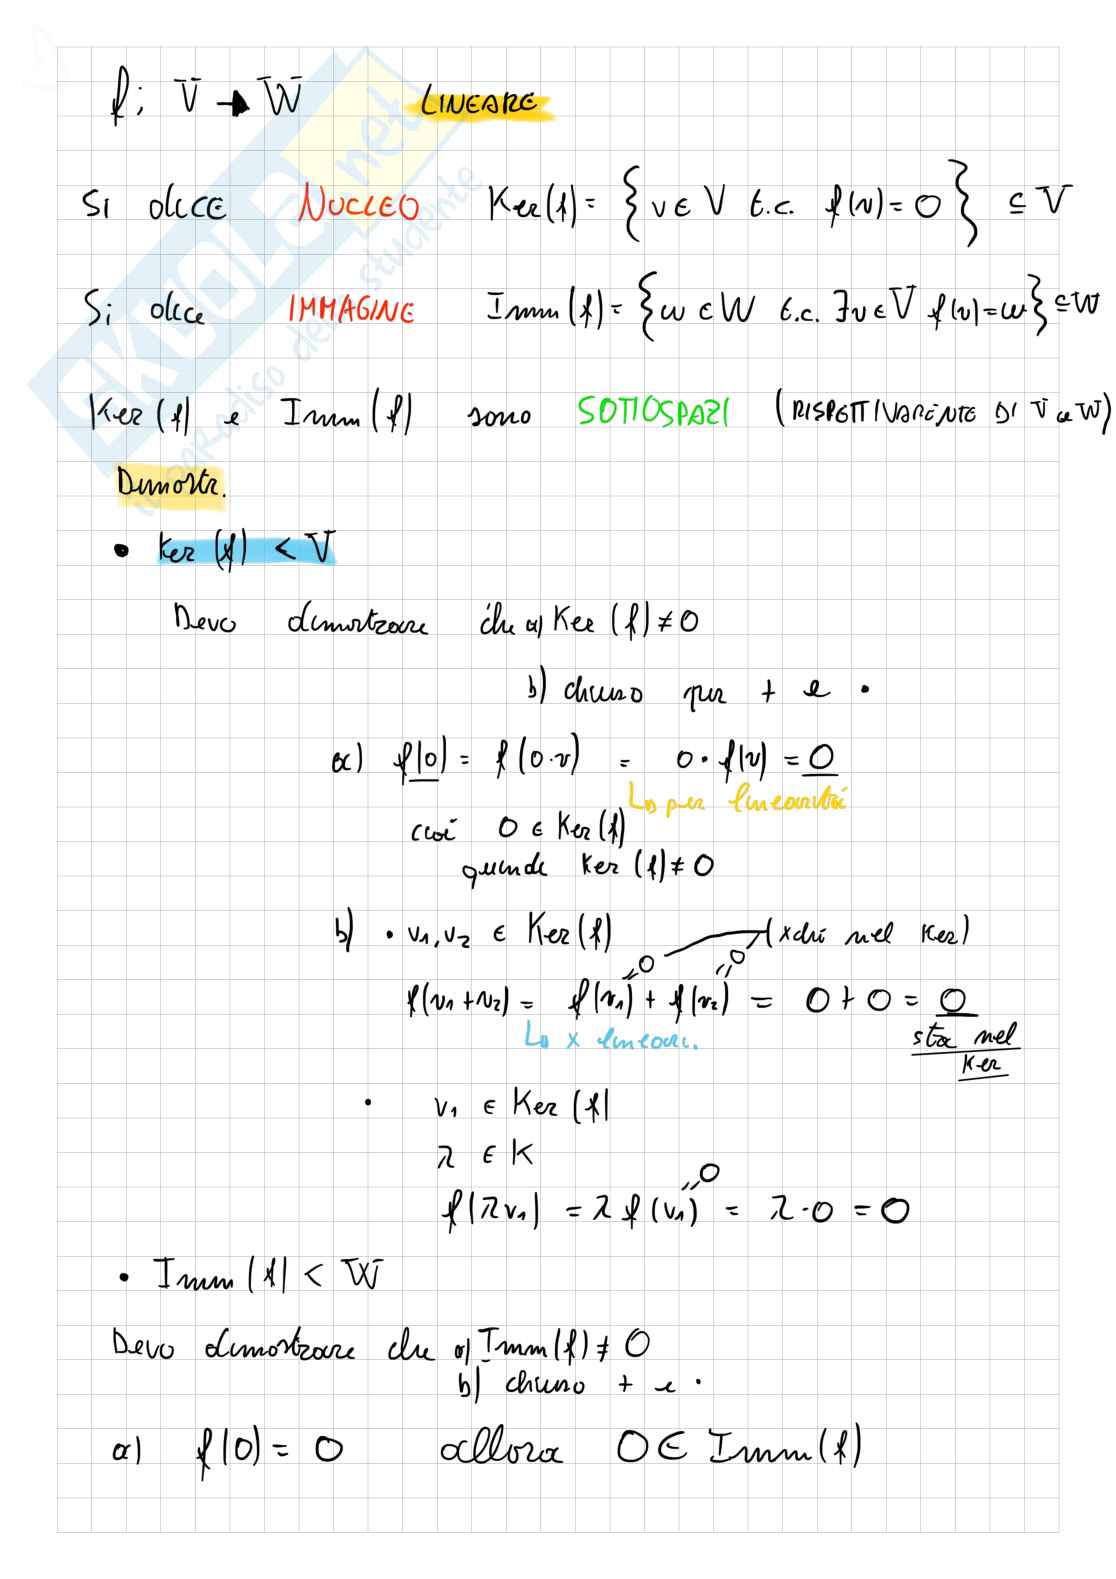 f: V → W LINEARE
Si dice NUCLEO Ker(f) = { v ∈ V t.c. f(v) = 0 } ⊆ V
Si dice IMMAGINE Imm(f) = { w ∈ W t.c. ∃v ∈ V f(v) = w } ⊆ W
Ker(f) e Imm(f) sono SOTTOSPAZI (RISPETTIVAMENTE DI V e W)
Dimostr.
• Ker(f) < V
Devo dimostrare che a) Ker(f) ≠ 0
b) chiuso per + e •
a) f(0) = f(0·v) = 0·f(v) = 0
↳ per linearità
cioè 0 ∈ Ker(f)
quindi Ker(f) ≠ 0
b) • v₁, v₂ ∈ Ker(f) (xché nel Ker)
=0 =0
f(v₁ + v₂) = f(v₁) + f(v₂) = 0 + 0 = 0
↳ x linear. sta nel
Ker
• v₁ ∈ Ker(f)
λ ∈ K
=0
f(λv₁) = λ f(v₁) = λ·0 = 0
• Imm(f) < W
Devo dimostrare che a) Imm(f) ≠ 0
b) chiuso + e •
a) f(0) = 0 allora 0 ∈ Imm(f)
SKUOLA.net
il paradiso dello studente